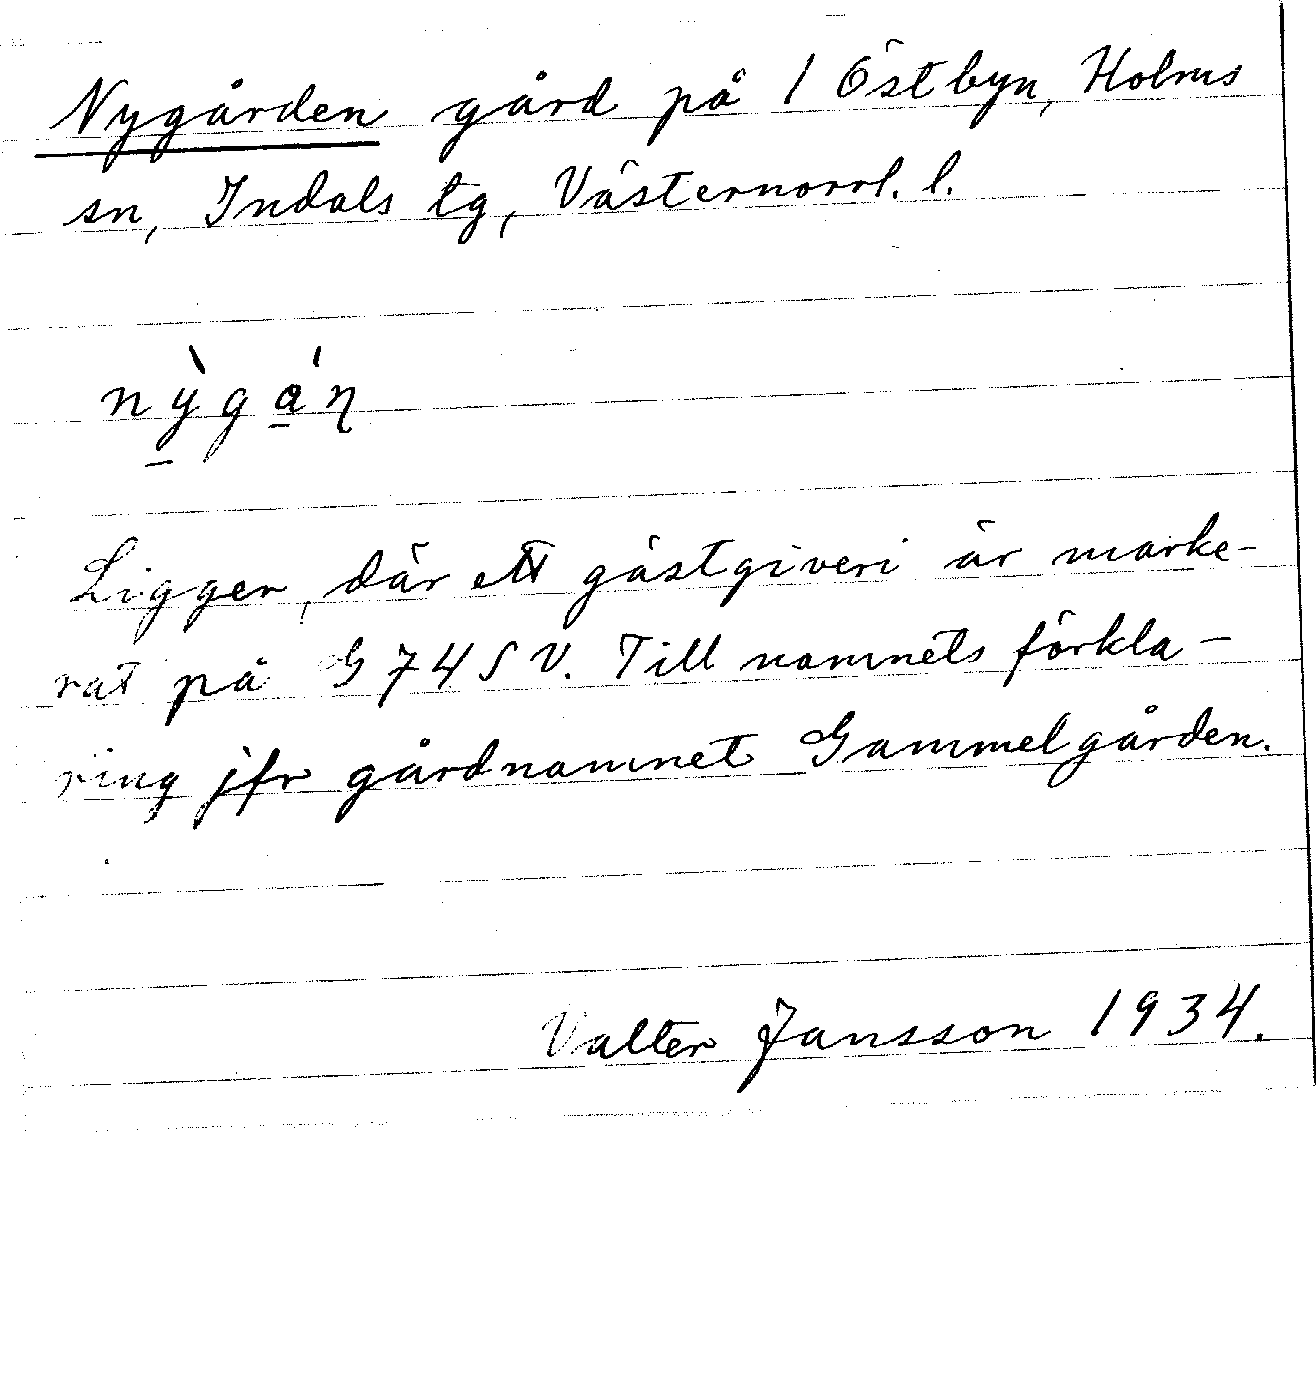 Nygården gård på 1 Östbyn, Holms
sn, Indals tg, Västernorrl. l.
nỳgáɳ
Ligger, där ett gästgiveri är marke-
rat på G 74 S V. Till namnets förkla-
ring jfr gårdnamnet Gammelgården.
Valter Jansson 1934.